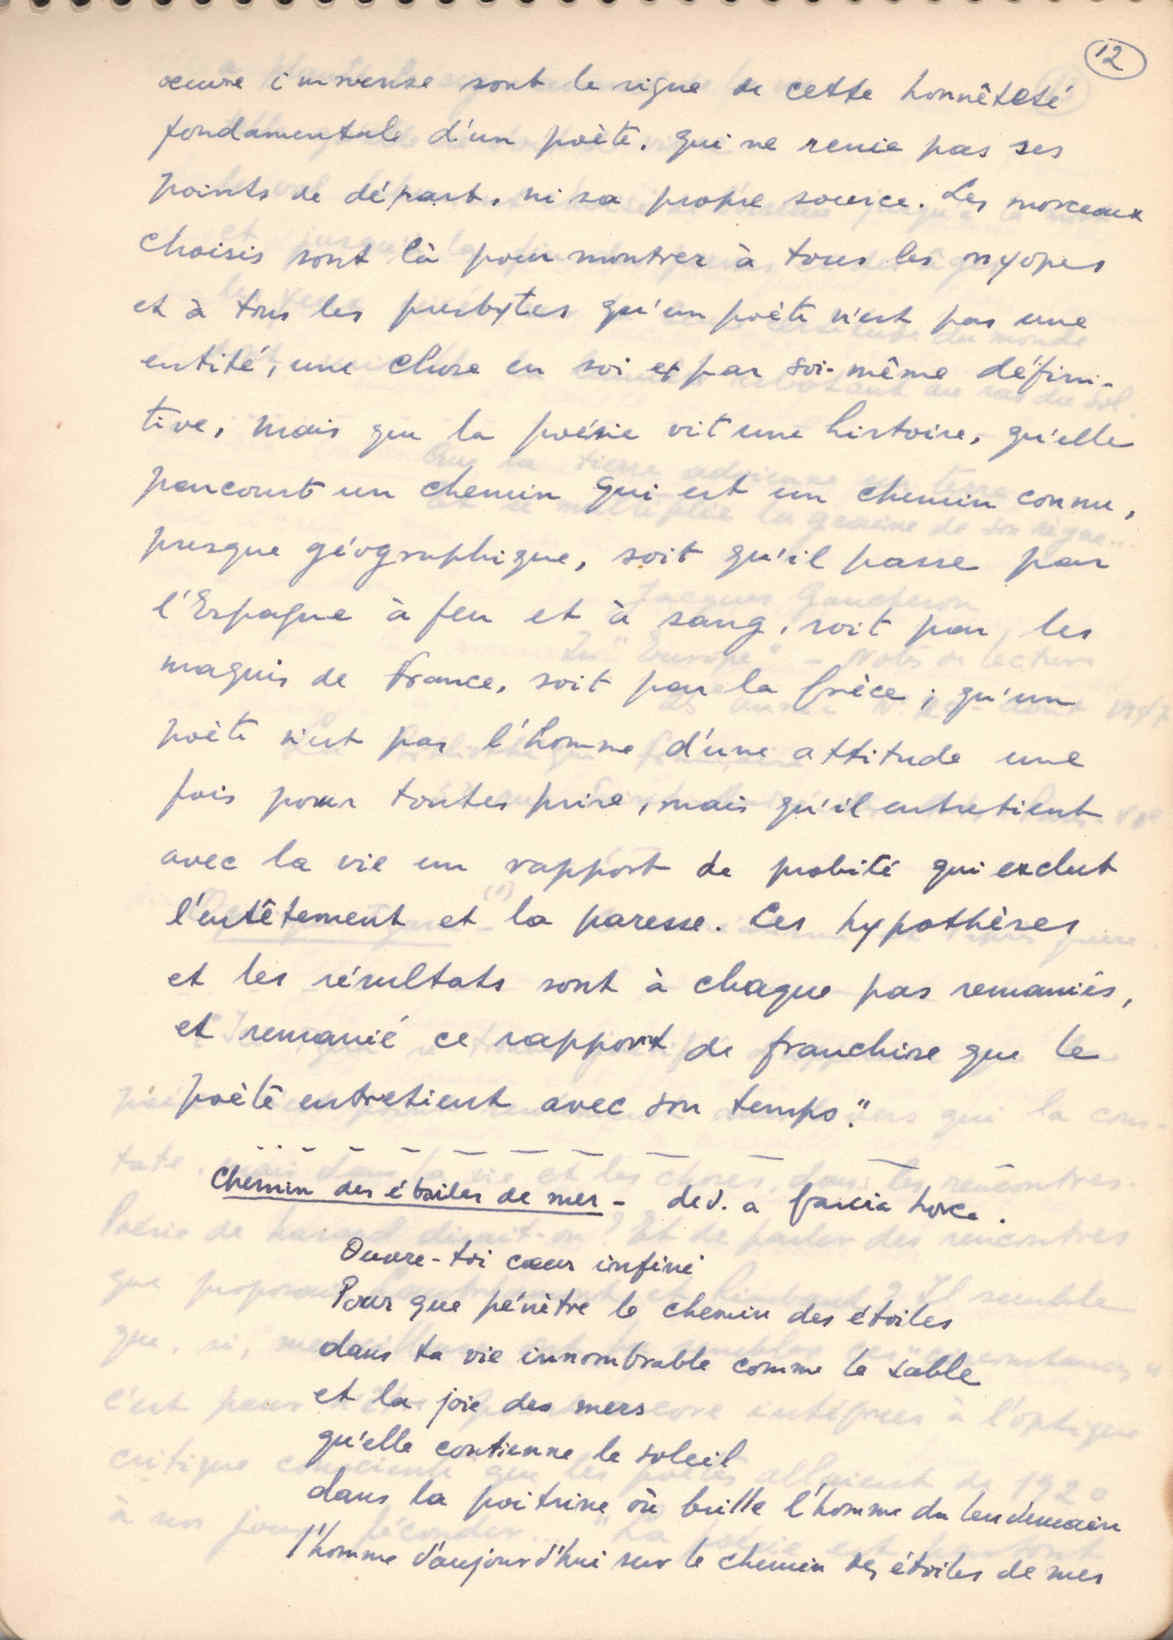 12
oeuvre immense sont le signe de cette honnêteté
fondamentale d'un poète. qui ne renie pas ses
points de départ, ni sa propre source. Les morceaux
choisis sont là pour montrer à tous les myopes
et à tous les presbytes qu'un poète n'est pas une
entité, une chose en soi et par soi-même défini-
tive, mais que la poésie vit une histoire, qu'elle
parcourt un chemin qui est un chemin connu,
presque géographique, soit qu'il passe par
l'Espagne à feu et à sang, soit par les
maquis de France, soit par la Grèce ; qu'un
poète n'est pas l'homme d'une attitude une
fois pour toutes prise, mais qu'il entretient
avec la vie un rapport de probité qui exclut
l'entêtement et la paresse. Les hypothèses
et les résultats sont à chaque pas remaniés,
et remanié ce rapport de franchise que le
poète entretient avec son temps."
Chemin des étoiles de mer - ded. a Garcia Lorca.
Ouvre-toi cœur infini
Pour que pénètre le chemin des étoiles
dans ta vie innombrable comme le sable
et la joie des mers
qu'elle contienne le soleil
dans la poitrine où brille l'homme du lendemain
l'homme d'aujourd'hui sur le chemin des étoiles de mer